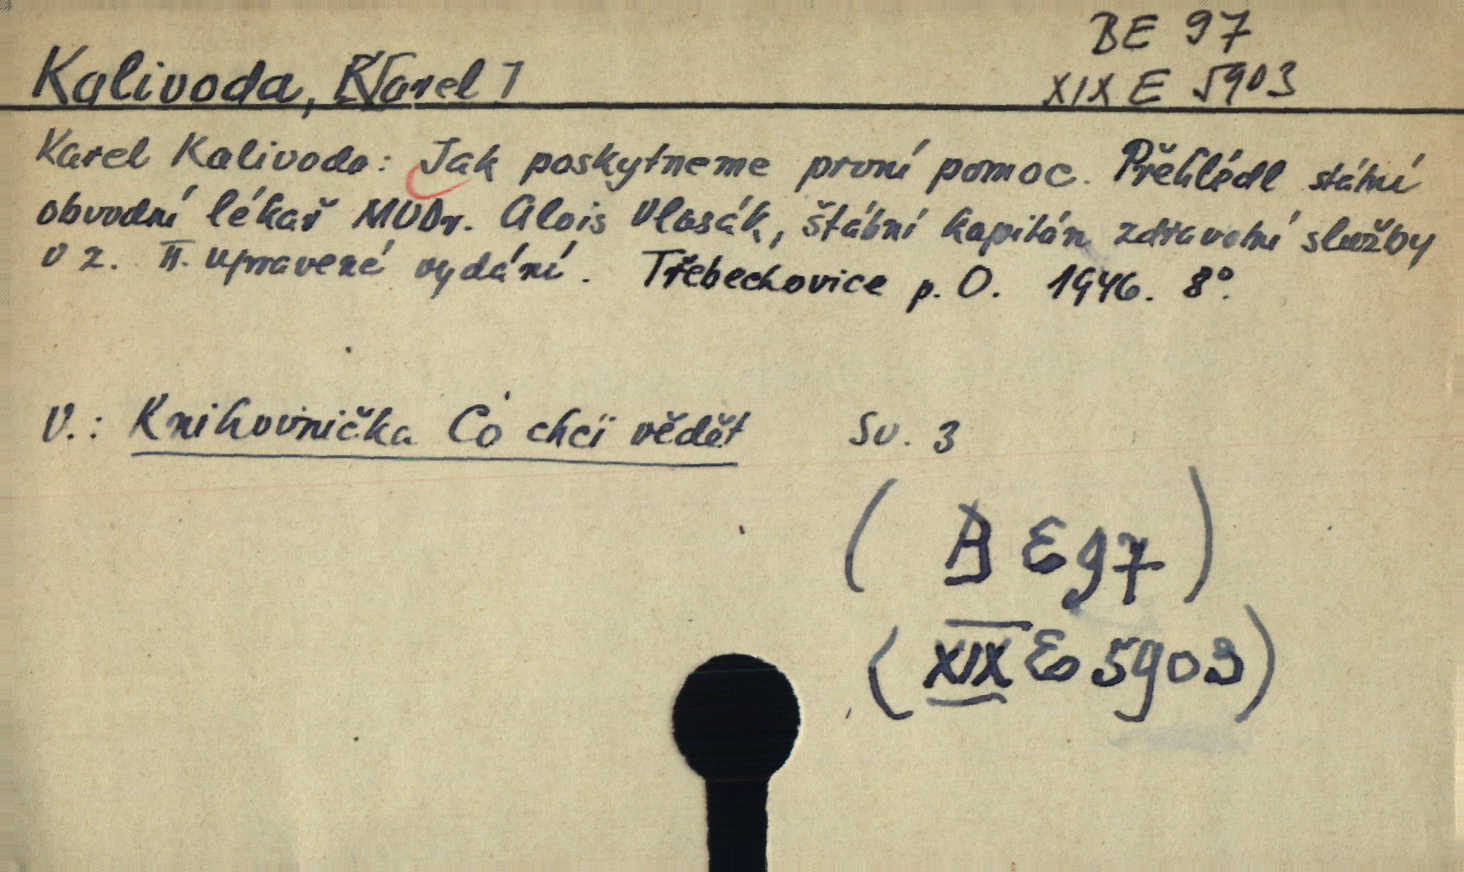 BE 97
Kalivoda, Karel 1
XIX E 5903
Karel Kalivoda: Jak poskytneme první pomoc. Přehlédl státní
obvodní lékař MUDr. Alois Vlasák, štábní kapitán zdravotní služby
v z. II. upravené vydání. Třebechovice p. O. 1946. 8°.
V.: Knihovnička Co chci vědět Sv. 3
(B E 97)
(XIX E 5903)